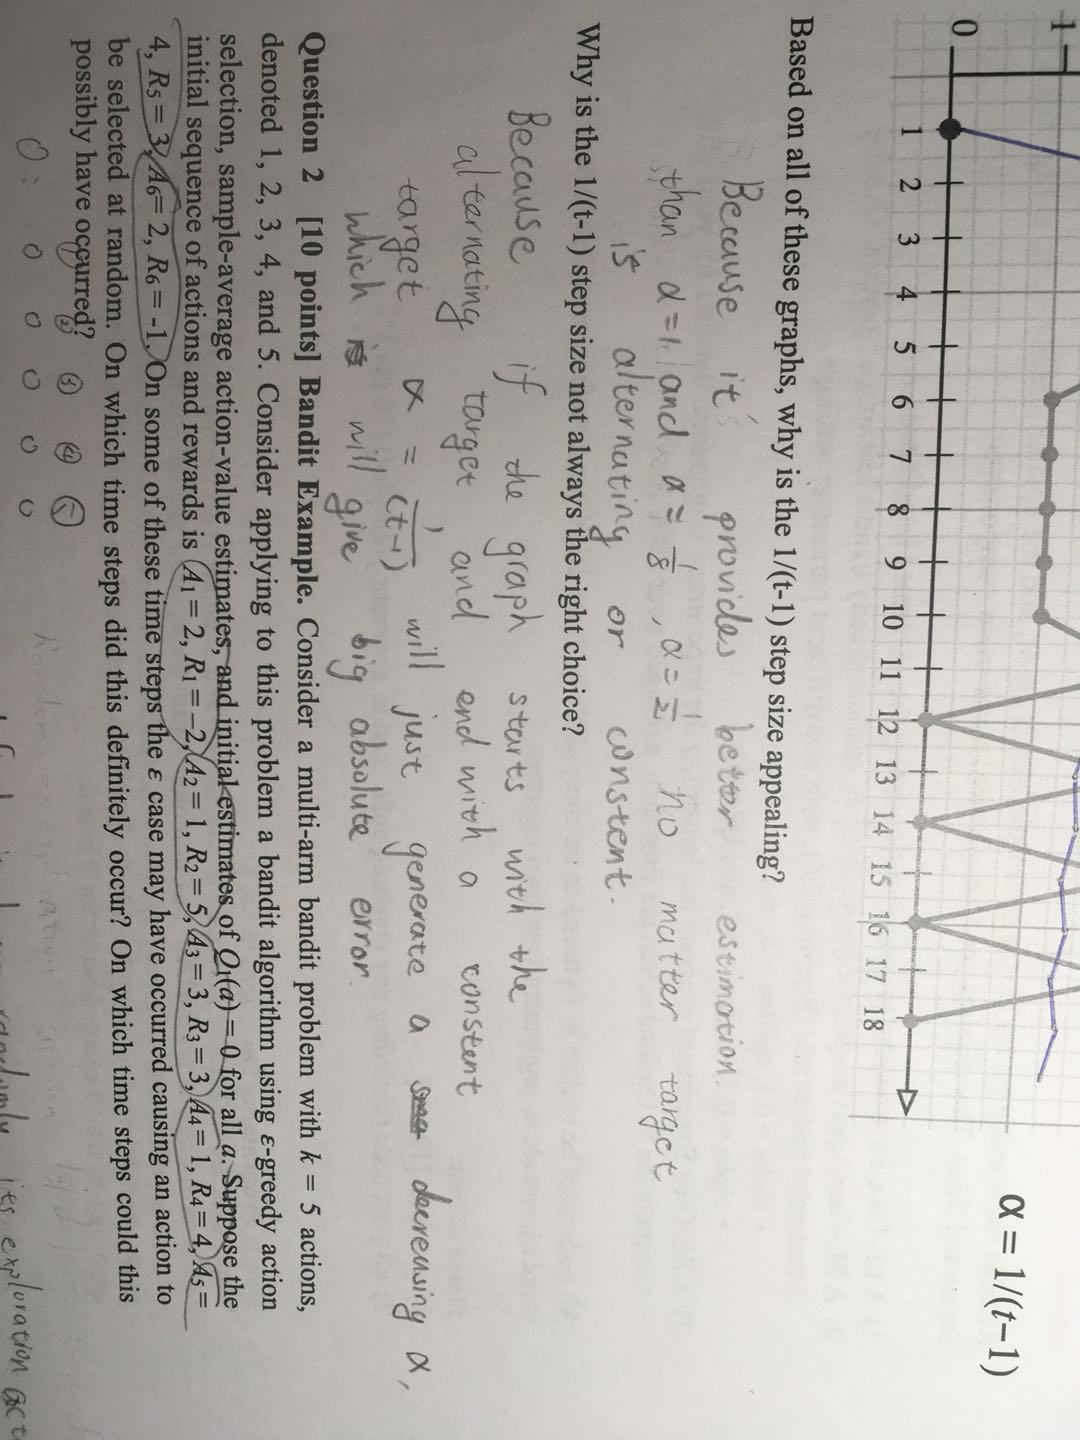 1
0
1 2 3 4 5 6 7 8 9 10 11 12 13 14 15 16 17 18
α = 1/(t−1)
Based on all of these graphs, why is the 1/(t-1) step size appealing?
Because it provides better estimation.
than α=1, and α = 1/8, α = 1/2 no matter target
is alternating or constent.
Why is the 1/(t-1) step size not always the right choice?
Because if the graph starts with the
alternating target and end with a constent
target α = 1/(t-1) will just generate a decreasing α,
which will give big absolute error.
Question 2 [10 points] Bandit Example. Consider a multi-arm bandit problem with k = 5 actions,
denoted 1, 2, 3, 4, and 5. Consider applying to this problem a bandit algorithm using ε-greedy action
selection, sample-average action-value estimates, and initial estimates of Q1(a) = 0 for all a. Suppose the
initial sequence of actions and rewards is A1 = 2, R1 = −2, A2 = 1, R2 = 5, A3 = 3, R3 = 3, A4 = 1, R4 = 4, A5 =
4, R5 = 3, A6 = 2, R6 = -1. On some of these time steps the ε case may have occurred causing an action to
be selected at random. On which time steps did this definitely occur? On which time steps could this
possibly have occurred?
② ③ ④ ⑤
0: 0 0 0 0 0
randomly its exploration